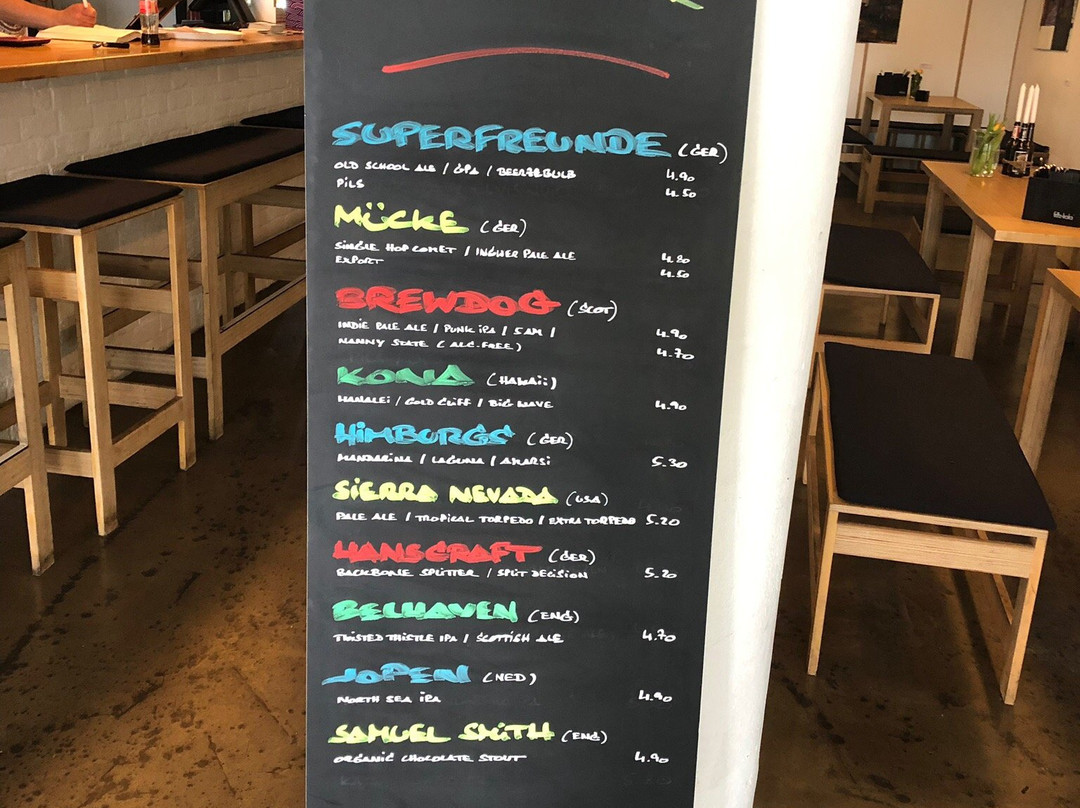 SUPERFREUNDE (GER)
OLD SCHOOL ALE / GPA / BEERZEBULB 4.90
PILS 4.50
MÜCKE (GER)
SINGLE HOP COMET / INGWER PALE ALE 4.80
EXPORT 4.50
BREWDOG (SCOT)
INDIE PALE ALE / PUNK IPA / 5AM / 4.90
NANNY STATE (ALC.FREE) 4.70
KONA (HAWAII)
HANALEI / GOLD CLIFF / BIG WAVE 4.90
HIMBURGS (GER)
MANDARINA / LAGUNA / AMARSI 5.30
SIERRA NEVADA (USA)
PALE ALE / TROPICAL TORPEDO / EXTRA TORPEDO 5.20
HANSCRAFT (GER)
BACKBONE SPLITTER / SPLIT DECISION 5.20
BELHAVEN (ENG)
TWISTED THISTLE IPA / SCOTTISH ALE 4.70
JOPEN (NED)
NORTH SEA IPA 4.90
SAMUEL SMITH (ENG)
ORGANIC CHOCOLATE STOUT 4.90
fritz-kola